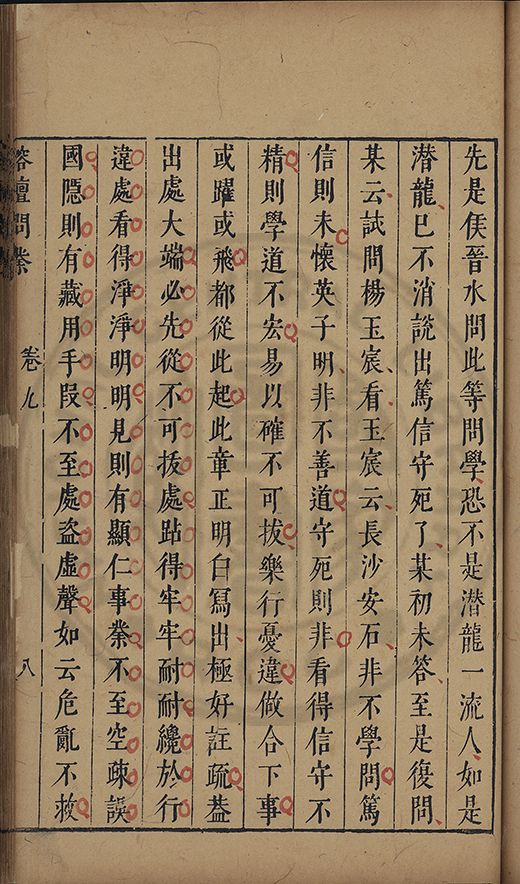 先是侯晉水問此等問學恐不是潛龍一流人如是
潛龍已不消說出篤信守死了某初未答至是復問
某云試問楊玉宸看玉宸云長沙安石非不學問篤
信則未懷英子明非不善道守死則非看得信守不
精則學道不宏易以確不可拔樂行憂違做合下事
或躍或飛都從此起此章正明白寫出極好註疏葢
出處大端必先從不可拔處跕得牢牢耐耐纔於行
違處看得淨淨明明見則有顯仁事業不至空疎誤
國隱則有藏用手段不至處盜虛聲如云危亂不救
榕壇問業
卷九
八